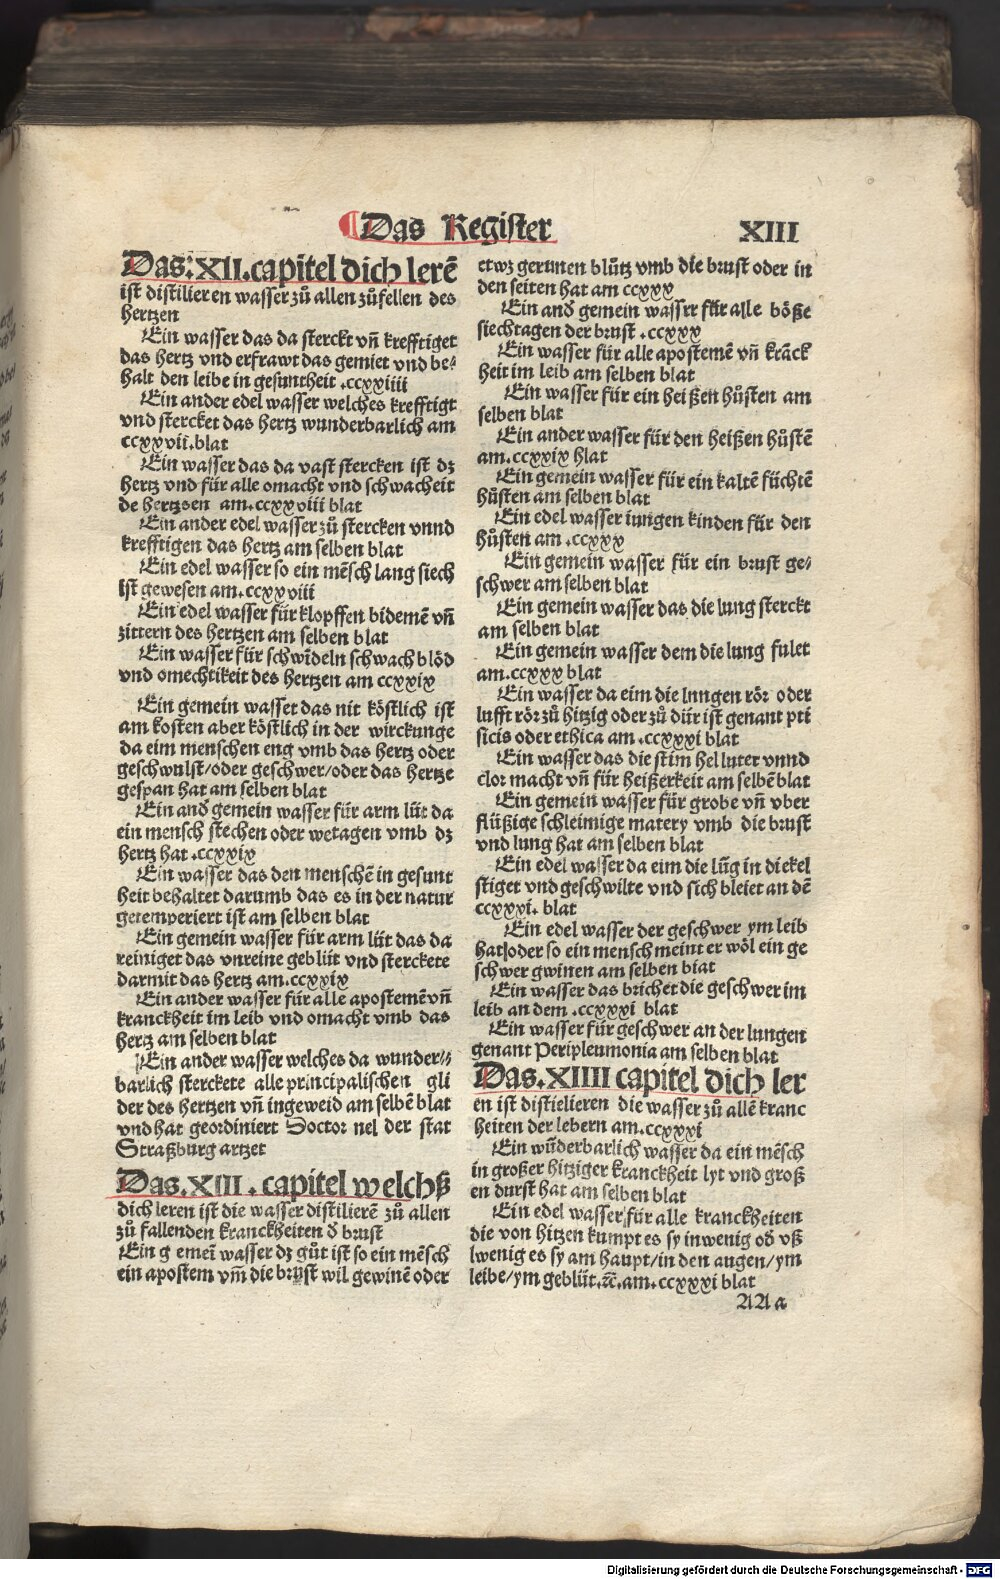 Das Register
XIII
Das.XII.capitel dich lerē
ist distilieren wasser zů allen zůfellen des
hertzen
Ein wasser das da sterckt vñ krefftiget
das hertz vnd erfrawt das gemiet vnd be⸗
halt den leibe in gesuntheit .ccxxiiii
Ein ander edel wasser welches krefftigt
vnd stercket das hertz wunderbarlich am
ccxxvii.blat
Ein wasser das da vast stercken ist dz
hertz vnd für alle omacht vnd schwacheit
de hertzsen am.ccxxviii blat
Ein ander edel wasser zů stercken vnnd
krefftigen das hertz am selben blat
Ein edel wasser so ein mēsch lang siech
ist gewesen am.ccxxviii
Ein edel wasser für klopffen bidemē vñ
zittern des hertzen am selben blat
Ein wasser für schwīdeln schwach blöd
vnd omechtikeit des hertzen am ccxxix
Ein gemein wasser das nit köstlich ist
am kosten aber köstlich in der wirckunge
da eim menschen eng vmb das hertz oder
geschwulst/oder geschwer/oder das hertze
gespan hat am selben blat
Ein and̄ gemein wasser für arm lüt da
ein mensch stechen oder wetagen vmb dz
hertz hat .ccxxix
Ein wasser das den menschē in gesunt
heit behaltet darumb das es in der natur
getemperiert ist am selben blat
Ein gemein wasser für arm lüt das da
reiniget das vnreine geblüt vnd sterckete
darmit das hertz am.ccxxix
Ein ander wasser für alle apostemē vñ
kranckheit im leib vnd omacht vmb das
hertz am selben blat
Ein ander wasser welches da wunder⸗
barlich sterckete alle principalischen gli
der des hertzen vñ ingeweid am selbē blat
vnd hat geordiniert Doctor nel der stat
Straßburg artzet
Das.XIII.capitel welchß
dich leren ist die wasser distilierē zů allen
zů fallenden kranckheiten d̄ brust
Ein gemeī wasser dz gůt ist so ein mēsch
ein apostem vm̄ die brust wil gewinē oder
etwz gerunen blůtz vmb die brust oder in
den seiten hat am ccxxx
Ein and̄ gemein wasser für alle böße
siechtagen der brust .ccxxx
Ein wasser für alle apostemē vñ krāck
heit im leib am selben blat
Ein wasser für ein heißen hůsten am
selben blat
Ein ander wasser für den heißen hůstē
am.ccxxix blat
Ein gemein wasser für ein kaltē füchtē
hůsten am selben blat
Ein edel wasser iungen kinden für den
hůsten am .ccxxx
Ein gemein wasser für ein brust ge⸗
schwer am selben blat
Ein gemein wasser das die lung sterckt
am selben blat
Ein gemein wasser dem die lung fulet
am.ccxxx blat
Ein wasser da eim die lungen rör oder
lufft rör zů hitzig oder zů dür ist genant pti
sicis oder ethica am .ccxxxi blat
Ein wasser das die stim hel luter vnnd
clor macht vñ für heißerkeit am selbē blat
Ein gemein wasser für grobe vñ vber
flüßige schleimige matery vmb die brust
vnd lung hat am selben blat
Ein edel wasser da eim die lūg in die kel
stiget vnd geschwilte vnd sich bleiet an dē
ccxxxi. blat
Ein edel wasser der geschwer ym leib
hat/oder so ein mensch meint er wöl ein ge
schwer gwinen am selben blat
Ein wasser das brichet die geschwer im
leib an dem .ccxxxi blat
Ein wasser für geschwer an der lungen
genant Peripleumonia am selben blat
Das.XIIII capitel dich ler
en ist distielieren die wasser zů allē kranc
heiten der lebern am.ccxxxi
Ein wūderbarlich wasser da ein mēsch
in großer hitziger kranckheit lyt vnd groß
en durst hat am selben blat
Ein edel wasser für alle kranckheiten
die von hitzen kumpt es sy inwenig od̄ vß
lwenig es sy am haupt/in den augen/ym
leibe/ym geblüt.ꝛc̄.am.ccxxxi blat
AA a
Digitalisierung gefördert durch die Deutsche Forschungsgemeinschaft - DFG